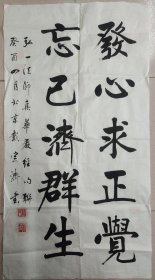 發心求正覺
忘己濟群生
弘一法師集華嚴經句聯
癸酉四月於京戴宗濟書